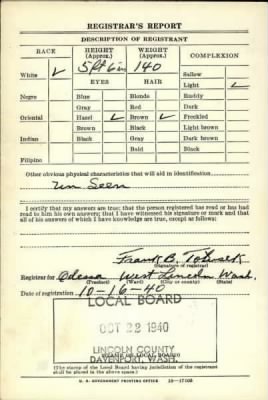 REGISTRAR'S REPORT
DESCRIPTION OF REGISTRANT
RACE HEIGHT (Approx.) WEIGHT (Approx.) COMPLEXION
5 ft 6 in 140 Sallow
White ✓ EYES HAIR Light ✓
Negro Blue Blonde Ruddy
Gray Red Dark
Oriental Hazel ✓ Brown ✓ Freckled
Brown Black Light brown
Indian Black Gray Dark brown
Bald Black
Filipino
Other obvious physical characteristics that will aid in identification
Un Seen
I certify that my answers are true; that the person registered has read or has had
read to him his own answers; that I have witnessed his signature or mark and that
all of his answers of which I have knowledge are true, except as follows:
Frank B.
(Signature of registrar)
Registrar for Odessa West Lincoln Wash.
(Precinct) (Ward) (City or county) (State)
Date of registration 10-16-40
LOCAL BOARD
OCT 22 1940
LINCOLN COUNTY
DAVENPORT, WASH.
(STAMP OF LOCAL BOARD)
(The stamp of the Local Board having jurisdiction of the registrant
shall be placed in the above space.)
U. S. GOVERNMENT PRINTING OFFICE 16-17105